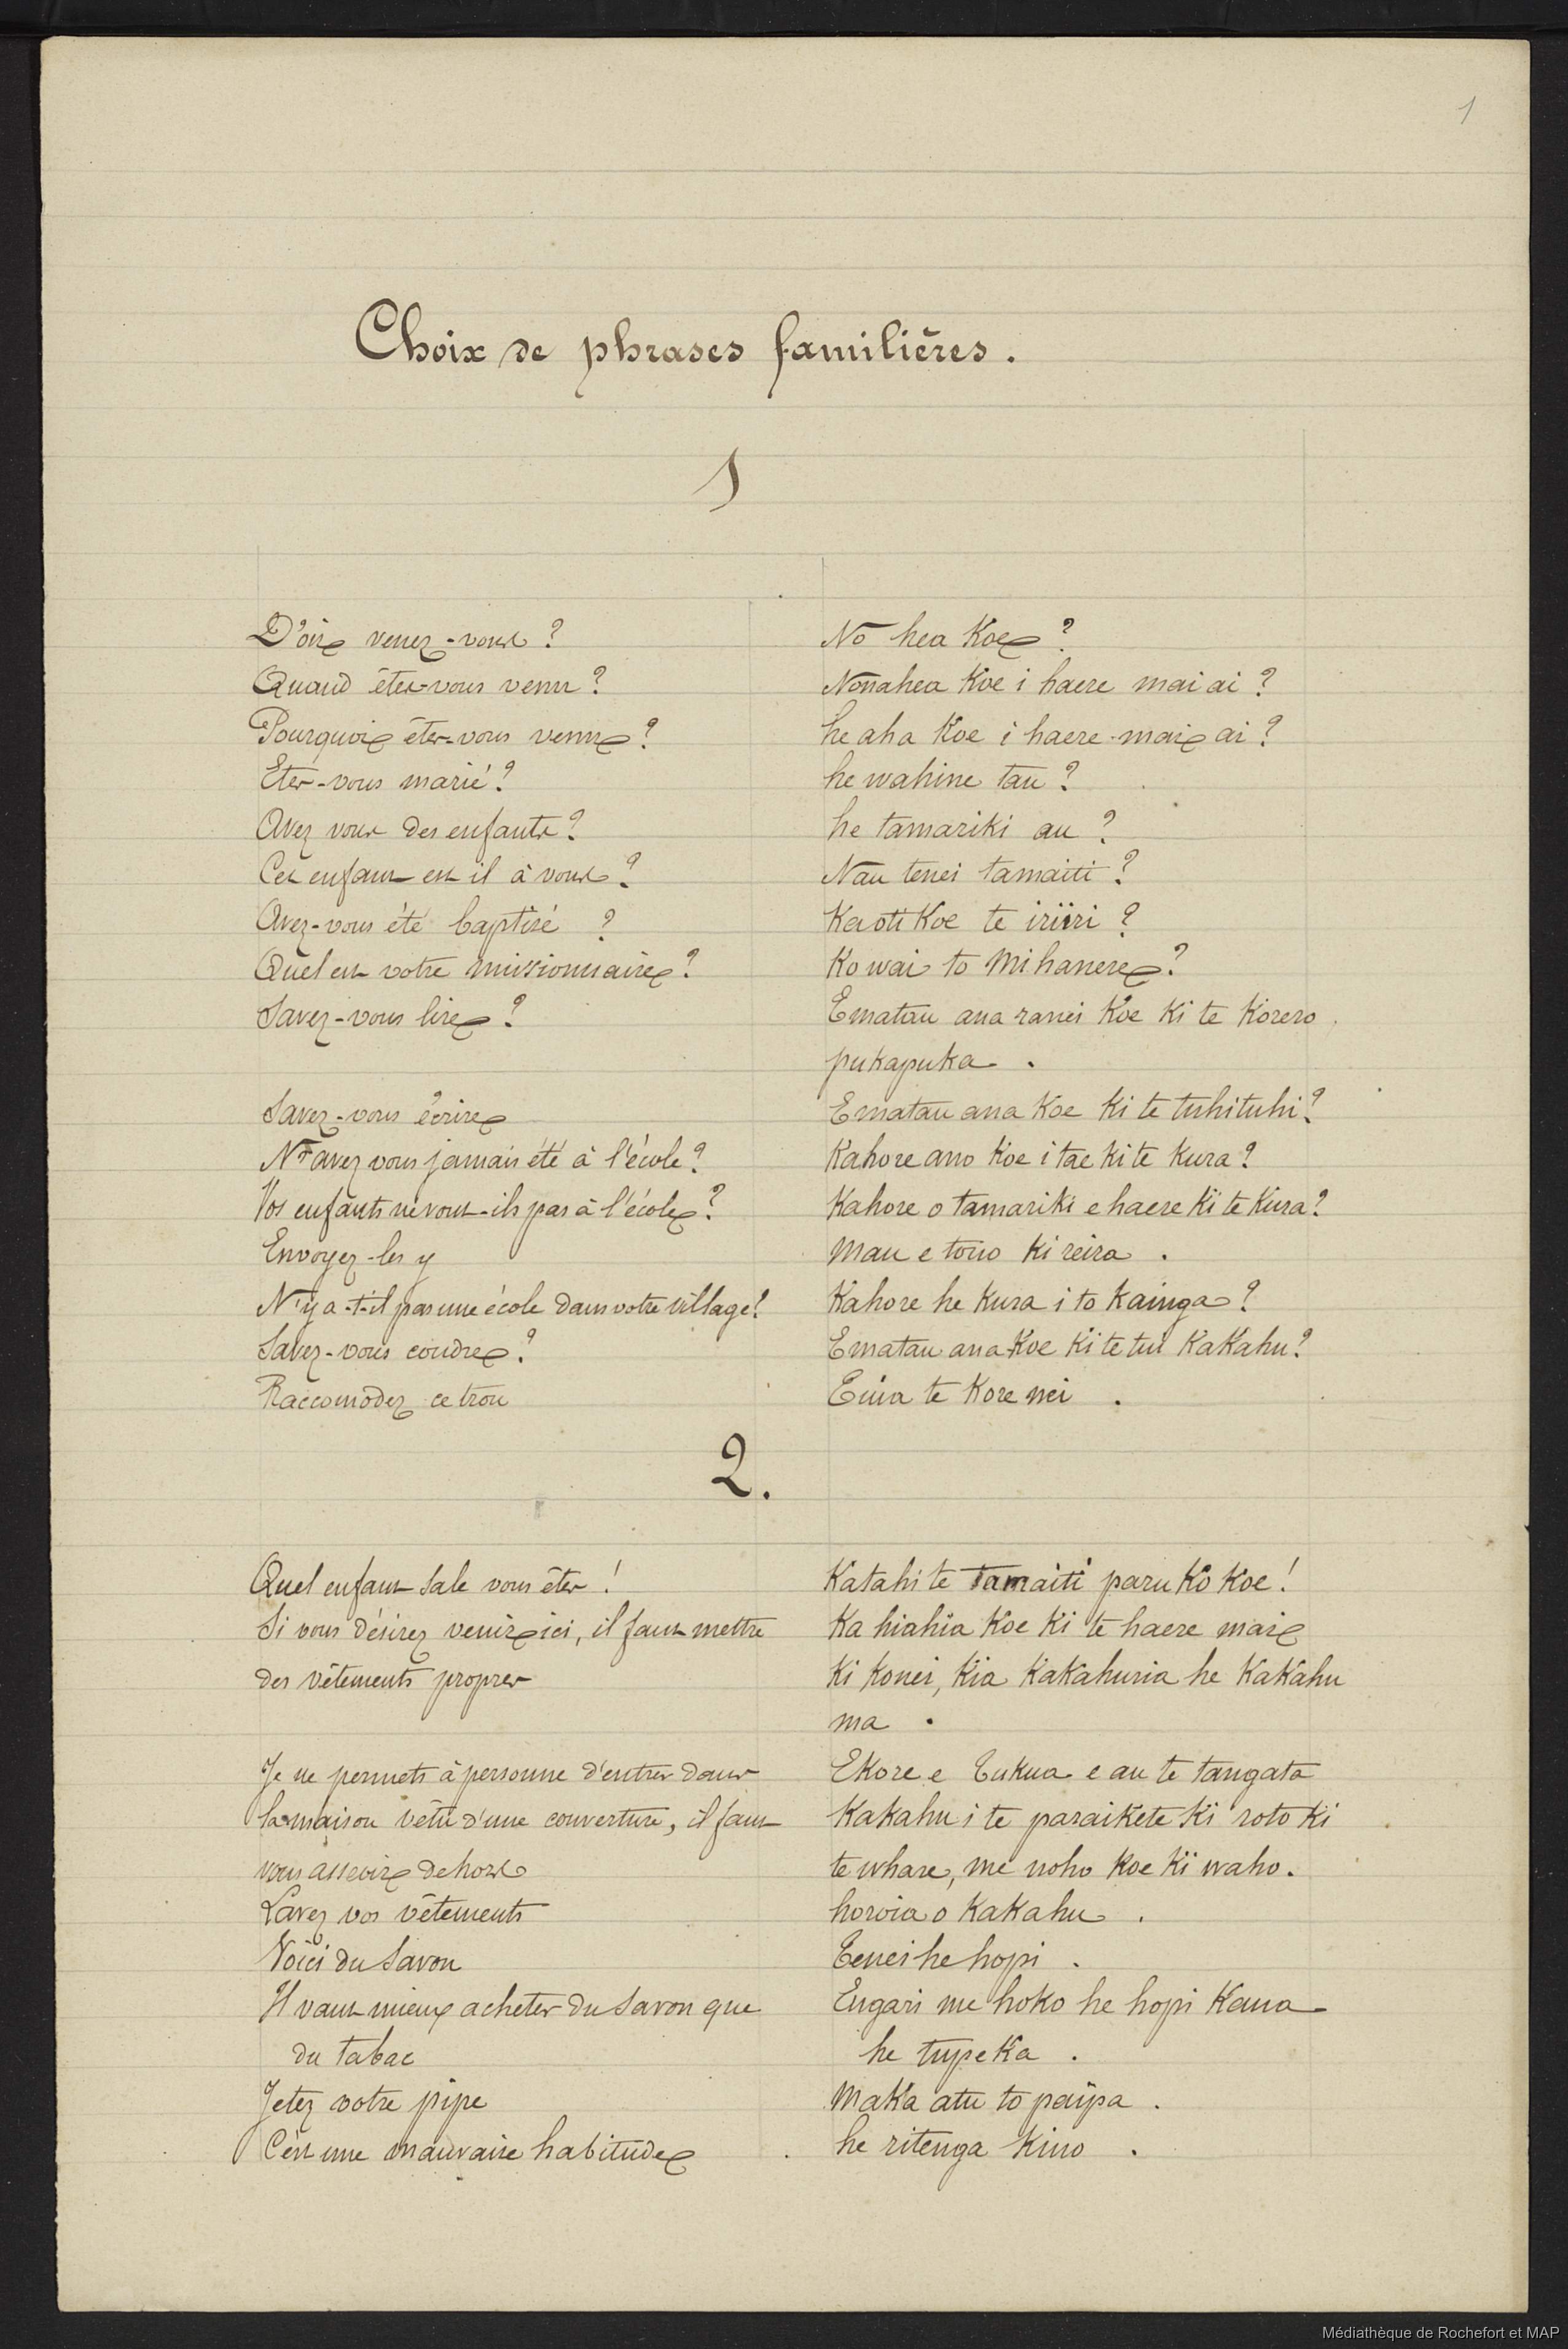 1
Choix de phrases familières.
1
D'où venez-vous ? No hea Koe ?
Quand êtes-vous venu ? Nonahea Koe i haere mai ai ?
Pourquoi êtes-vous venu ? he aha Koe i haere mai ai ?
Etes-vous marié ? he wahine tau ?
Avez vous des enfants ? he tamariki au ?
Cet enfant est il à vous ? Nau tenei tamaiti ?
Avez-vous été baptisé ? Kaoti Koe te iriiri ?
Quel est votre missionnaire ? Ko wai to Mihanere ?
Savez-vous lire ? Ematau ana ranei Koe Ki te Korero
pukapuka .
Savez-vous écrire Ematau ana Koe Ki te tuhituhi ?
N'avez vous jamais été à l'école ? Kahore ano Koe i tae Ki te Kura ?
Vos enfants ne vont-ils pas à l'école ? Kahore o tamariki e haere Ki te Kura ?
Envoyez-les y Mau e tono Ki reira .
N'y a-t-il pas une école dans votre village ? Kahore he Kura i to Kainga ?
Savez-vous coudre ? Ematau ana Koe Ki te tui KaKahu ?
Raccomodez ce trou Euia te Kore nei .
2.
Quel enfant sale vous êtes ! Katahi te tamaiti paru Ko Koe !
Si vous désirez venir ici, il faut mettre Ka hiahia Koe Ki te haere mai
des vêtements propres Ki Konei, Kia KaKahuria he KaKahu
ma .
Je ne permets à personne d'entrer dans EKore e tukua e au te tangata
la maison vêtu d'une couverture, il faut KaKahu i te paraikete Ki roto Ki
vous asseoir dehors te whare, me noho Koe Ki waho.
Lavez vos vêtements horoia o KaKahu .
Voici du savon Tenei he hopi .
Il vaut mieux acheter du savon que Engari me hoko he hopi Kaua
du tabac he tupeKa .
Jetez votre pipe MaKa atu to paipa .
C'est une mauvaise habitude he ritenga Kino .
Médiathèque de Rochefort et MAP